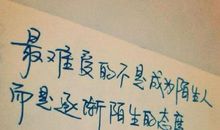 最难受的不是成为陌生人
而是逐渐陌生的态度